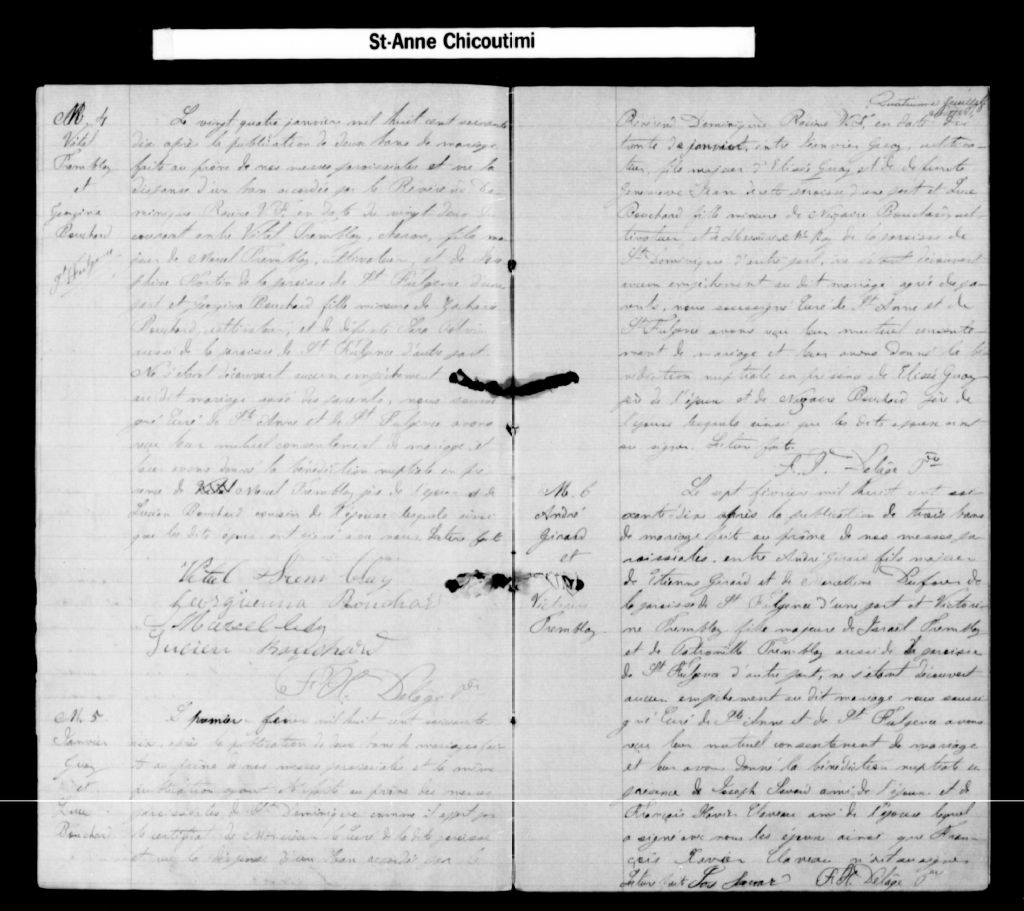 St-Anne Chicoutimi
M. 4
Vital
Tremblay
et
Georgina
Bouchard
Le vingt quatre janvier mil huit cent soixante
dix après la publication de deux bans de mariage
faite au prône de nos messes paroissiales et vu la
dispense d'un ban accordée par le Révérend Do-
minique Racine V.F. en date du vingt deux du
courant entre Vital Tremblay, fils ma-
jeur de Marcel Tremblay, cultivateur, et de
de la paroisse de St Fulgence d'une
part et Georgina Bouchard fille mineure de Zacharie
Bouchard, cultivateur, et de défunte
aussi de la paroisse de St Fulgence d'autre part.
Ne s'étant découvert aucun empêchement
au dit mariage des parents, nous soussi-
gné Curé de Ste Anne et de St Fulgence avons
reçu leur mutuel consentement de mariage et
leur avons donné la bénédiction nuptiale en pré-
sence de Marcel Tremblay père de l'époux et de
Lucien Bouchard cousin de l'épouse lesquels ainsi
que les dits époux ont signé avec nous. Lecture faite
Vital Tremblay
Bouchard
Marcel
Lucien Bouchard
F. X. Delâge Ptre
M. 5.
Janvier
Guay
et
Luce
Bouchard
Le premier février mil huit cent soixante
dix, après la publication de deux bans de mariage fai-
te au prône de nos messes paroissiales et la même
publication ayant été faite au prône des messes
paroissiales de St Dominique comme il appert par
le certificat de Monsieur le Curé de la dite paroisse
et vu la dispense d'un ban accordée par le
Quatrième feuillet
Révérend Dominique Racine V.F. en date du
trente de janvier, entre Janvier Guay, cultiva-
teur, fils majeur d'Elisée Guay et de défunte
Geneviève Jean de cette paroisse d'une part et Luce
Bouchard fille mineure de Nazaire Bouchard, cul-
tivateur et de de la paroisse de
St Dominique d'autre part, ne s'étant découvert
aucun empêchement au dit mariage des pa-
rents, nous soussigné Curé de Ste Anne et de
St Fulgence avons reçu leur mutuel consente-
ment de mariage et leur avons donné la bé-
nédiction nuptiale en présence de Elisée Guay
père de l'époux et de Nazaire Bouchard père de
l'épouse lesquels ainsi que les dits époux n'ont
su signer. Lecture faite.
F. X. Delâge Ptre
M. 6
André
Girard
et
Victorine
Tremblay
Le sept février mil huit cent soi-
xante-dix après la publication de trois bans
de mariage faite au prône de nos messes pa-
roissiales, entre André Girard fils majeur
de Etienne Girard et de Marcelline Dufour de
la paroisse de St Fulgence d'une part et Victori-
ne Tremblay fille majeure de Israël Tremblay
et de Pétronille Tremblay aussi de la paroisse
de St Fulgence d'autre part, ne s'étant découvert
aucun empêchement au dit mariage nous soussi-
gné Curé de Ste Anne et de St Fulgence avons
reçu leur mutuel consentement de mariage
et leur avons donné la bénédiction nuptiale en
présence de Joseph Savard ami de l'époux et de
François Xavier Claveau ami de l'épouse lequel
a signé avec nous les époux ainsi que Fran-
çois Xavier Claveau n'ont su signer
Lecture faite Jos Savar F. X. Delâge Ptre